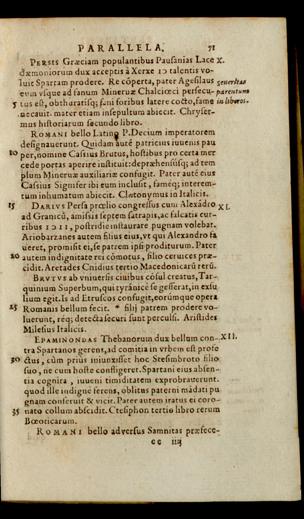 PARALLELA. 71
PERSIS Græciam populantibus Pausanias Lace X.
dæmoniorum dux acceptis à Xerxe talentis vo-
luit Spartam prodere. Re cōperta, pater Agesilaus seueritas
eum vsque ad fanum Mineruæ Chalciœci persecu- parentum
5 tus est, obthuratisq; fani foribus latere cocto, fame in liberos.
necauit. mater etiam insepultum abiecit. Chryser-
mus historiarum secundo libro.
ROMANI bello Latino P. Decium imperatorem
designauerunt. Quidam autē patricius iuuenis pau
10 per, nomine Cassius Brutus, hostibus pro certa mer
cede portas aperire instituit: deprǣhensusq; ad tem
plum Mineruæ auxiliariæ confugit. Pater autē eius
Cassius Signifer ibi eum inclusit, fameq; interem-
tum inhumatum abiecit. Clitonymus in Italicis.
15 DARIVS Persa prœlio congressus cum Alexādro XI.
ad Granicū, amissis septem satrapis, ac falcatis cur-
ribus postridie instaurare pugnam volebat.
Ariobarzanes autem filius eius, vt qui Alexandro fa
ueret, promisit ei, se patrem ipsi proditurum. Pater
20 autem indignitate rei cōmotus, filio ceruices præ-
cidit. Aretades Cnidius tertio Macedonicarū rerū.
BRVTVS ab vniuersis ciuibus cōsul creatus, Tar-
quinium Superbum, qui tyrānicè se gesserat, in exsu
lium egit. Is ad Etruscos confugit, eorúmque opera
25 Romanis bellum fecit. * filij patrem prodere vo-
luerunt, réq; detecta securi sunt percussi. Aristides
Milesius Italicis.
EPAMINONDAS Thebanorum dux bellum con- XII.
tra Spartanos gerens, ad comitia in vrbem est profe
30 ctus, cùm prius iniunxisset hoc Stesimbroto filio
suo, ne cum hoste confligeret. Spartani eius absen-
tia cognita, iuueni timiditatem exprobrauerunt.
quod ille indignè ferens, oblitus paterni mādati pu
gnam conseruit & vicit. Pater autem iratus ei coro-
35 nato collum abscidit. Ctesiphon tertio libro rerum
Bœoticarum.
ROMANI bello aduersus Samnitas præfece-
cc iiij